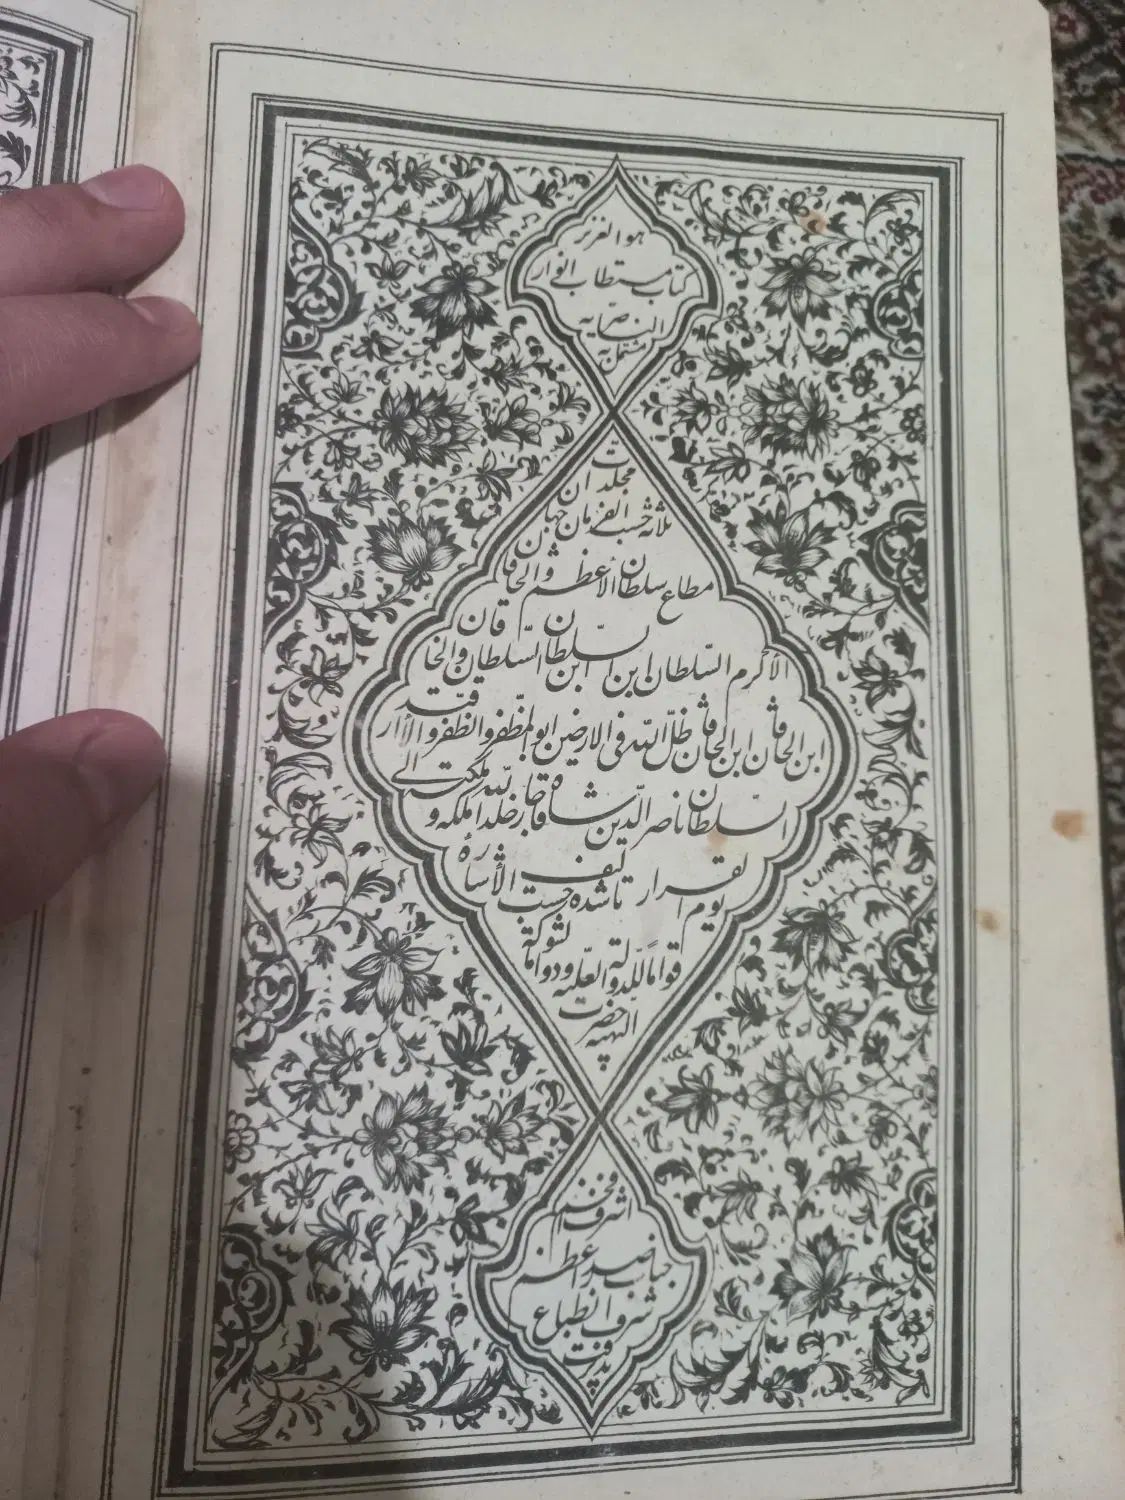 هو العزیز
کتاب مستطاب انوار
الناصریه
المشتمل به
مجلدات
ثلاثه حسب الفرمان جهان
مطاع سلطان الاعظم والخاقان
الاکرم السّلطان ابن السّلطان ابن السّلطان والخاقان
ابن الخاقان ابن الخاقان ظلّ اللّه فی الارضین ابوالمظفر والظفر والازار
السّلطان ناصرالدّین شاه قاجار خلداللّه ملکه و الی
یوم القرار تالیف شده حسب الاشاره
قواماً للدولة العلیّه و دواماً لشوکة
البهیه حضرت
اشرف افخم
جناب صدر اعظم
شرف انطباع
پذیرفت